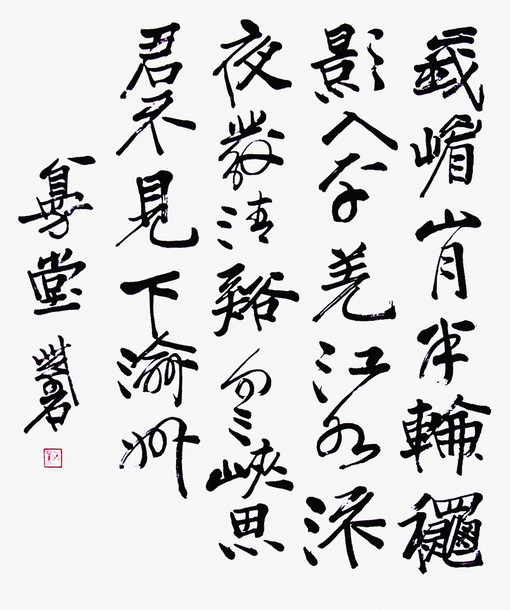 峩嵋山月半輪龝
影入平羌江水流
夜發清谿向三峽思
君不見下渝州
堂